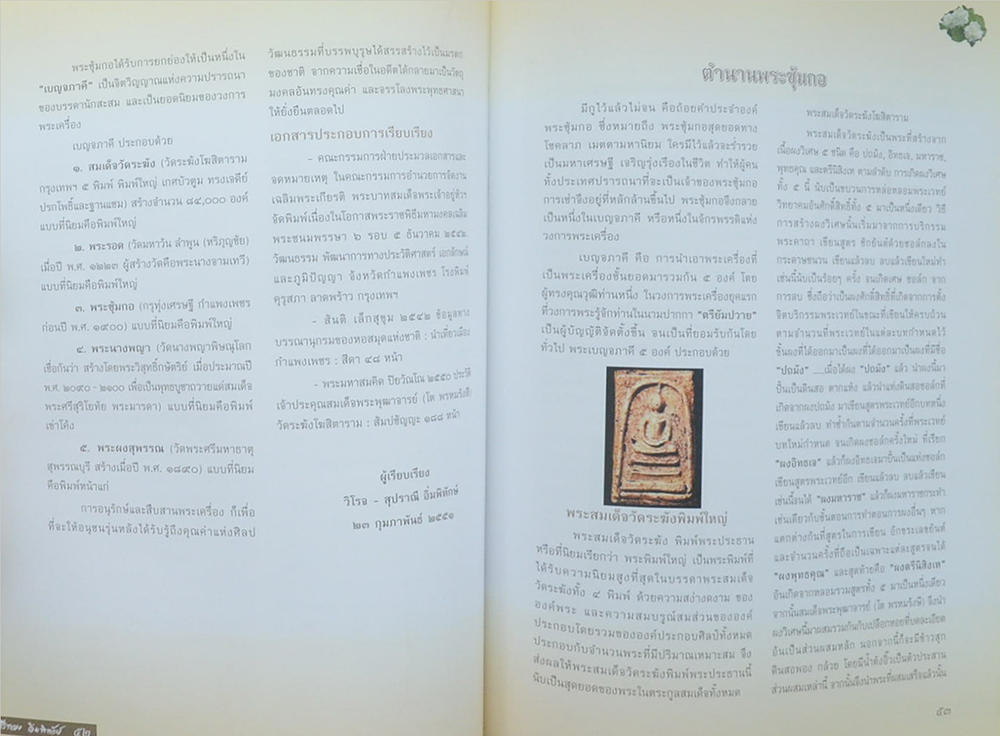 พระซุ้มกอได้รับการยกย่องให้เป็นหนึ่งใน
"เบญจภาคี" เป็นจิตวิญญาณแห่งความปรารถนา
ของบรรดานักสะสม และเป็นยอดนิยมของวงการ
พระเครื่อง
เบญจภาคี ประกอบด้วย
๑. สมเด็จวัดระฆัง (วัดระฆังโฆสิตาราม
กรุงเทพฯ ๕ พิมพ์ พิมพ์ใหญ่ เกศบัวตูม ทรงเจดีย์
ปรกโพธิ์และฐานแซม) สร้างจำนวน ๘๔,๐๐๐ องค์
แบบที่นิยมคือพิมพ์ใหญ่
๒. พระรอด (วัดมหาวัน ลำพูน (หริภุญชัย)
เมื่อปี พ.ศ. ๑๒๒๓ ผู้สร้างวัดคือพระนางจามเทวี)
แบบที่นิยมคือพิมพ์ใหญ่
๓. พระซุ้มกอ (กรุทุ่งเศรษฐี กำแพงเพชร
ก่อนปี พ.ศ. ๑๙๐๐) แบบที่นิยมคือพิมพ์ใหญ่
๔. พระนางพญา (วัดนางพญาพิษณุโลก
เชื่อกันว่า สร้างโดยพระวิสุทธิ์กษัตริย์ เมื่อประมาณปี
พ.ศ. ๒๐๙๐ - ๒๑๐๐ เพื่อเป็นพุทธบูชาถวายแด่สมเด็จ
พระศรีสุริโยทัย พระมารดา) แบบที่นิยมคือพิมพ์
เข่าโค้ง
๕. พระผงสุพรรณ (วัดพระศรีมหาธาตุ
สุพรรณบุรี สร้างเมื่อปี พ.ศ. ๑๘๙๐) แบบที่นิยม
คือพิมพ์หน้าแก่
การอนุรักษ์และสืบสานพระเครื่อง ก็เพื่อ
ที่จะให้อนุชนรุ่นหลังได้รับรู้ถึงคุณค่าแห่งศิลป
วัฒนธรรมที่บรรพบุรุษได้สรรสร้างไว้เป็นมรดก
ของชาติ จากความเชื่อในอดีตได้กลายมาเป็นวัตถุ
มงคลอันทรงคุณค่า และจรรโลงพระพุทธศาสนา
ให้ยั่งยืนตลอดไป
เอกสารประกอบการเรียบเรียง
- คณะกรรมการฝ่ายประมวลเอกสารและ
จดหมายเหตุ ในคณะกรรมการอำนวยการจัดงาน
เฉลิมพระเกียรติ พระบาทสมเด็จพระเจ้าอยู่หัวฯ
จัดพิมพ์เนื่องในโอกาสพระราชพิธีมหามงคลเฉลิม
พระชนมพรรษา ๖ รอบ ๕ ธันวาคม ๒๕๔๒.
วัฒนธรรม พัฒนาการทางประวัติศาสตร์ เอกลักษณ์
และภูมิปัญญา จังหวัดกำแพงเพชร โรงพิมพ์
คุรุสภา ลาดพร้าว กรุงเทพฯ
- สันติ เล็กสุขุม ๒๕๔๒ ข้อมูลทาง
บรรณานุกรมของหอสมุดแห่งชาติ : นำเที่ยวเมือง
กำแพงเพชร : สีดา ๔๘ หน้า
- พระมหาสมคิด ปิยวัณโณ ๒๕๕๐ ประวัติ
เจ้าประคุณสมเด็จพระพุฒาจารย์ (โต พรหมรังสี)
วัดระฆังโฆสิตาราม : สิมปชัญญะ ๑๘๘ หน้า
ผู้เรียบเรียง
วิโรจ - สุปราณี อิ่มพิทักษ์
๒๓ กุมภาพันธ์ ๒๕๕๑
๕๒
ตำนานพระซุ้มกอ
มีกูไว้แล้วไม่จน คือถ้อยคำประจำองค์
พระซุ้มกอ ซึ่งหมายถึง พระซุ้มกอสุดยอดทาง
โชคลาภ เมตตามหานิยม ใครมีไว้แล้วจะร่ำรวย
เป็นมหาเศรษฐี เจริญรุ่งเรืองในชีวิต ทำให้ผู้คน
ทั้งประเทศปรารถนาที่จะเป็นเจ้าของพระซุ้มกอ
การเช่าจึงอยู่ที่หลักล้านขึ้นไป พระซุ้มกอจึงกลาย
เป็นหนึ่งในเบญจภาคี หรือหนึ่งในจักรพรรดิแห่ง
วงการพระเครื่อง
เบญจภาคี คือ การนำเอาพระเครื่องที่
เป็นพระเครื่องชั้นยอดมารวมกัน ๕ องค์ โดย
ผู้ทรงคุณวุฒิท่านหนึ่ง ในวงการพระเครื่องยุคแรก
ที่วงการพระรู้จักท่านในนามปากกา "ตรียัมปวาย"
เป็นผู้บัญญัติจัดตั้งขึ้น จนเป็นที่ยอมรับกันโดย
ทั่วไป พระเบญจภาคี ๕ องค์ ประกอบด้วย
พระสมเด็จวัดระฆังพิมพ์ใหญ่
พระสมเด็จวัดระฆัง พิมพ์พระประธาน
หรือที่นิยมเรียกว่า พระพิมพ์ใหญ่ เป็นพระพิมพ์ที่
ได้รับความนิยมสูงที่สุดในบรรดาพระสมเด็จ
วัดระฆังทั้ง ๔ พิมพ์ ด้วยความสง่างดงาม ของ
องค์พระ และความสมบูรณ์สมส่วนขององค์
ประกอบโดยรวมขององค์ประกอบศิลป์ทั้งหมด
ประกอบกับจำนวนพระที่มีปริมาณเหมาะสม จึง
ส่งผลให้พระสมเด็จวัดระฆังพิมพ์พระประธานนี้
นับเป็นสุดยอดของพระในตระกูลสมเด็จทั้งหมด
พระสมเด็จวัดระฆังโฆสิตาราม
พระสมเด็จวัดระฆังเป็นพระที่สร้างจาก
เนื้อผงวิเศษ ๕ ชนิด คือ ปถมัง, อิทธเจ, มหาราช,
พุทธคุณ และตรีนิสิงเห ตามลำดับ การเกิดผงวิเศษ
ทั้ง ๕ นี้ นับเป็นขบวนการหล่อหลอมพระเวทย์
วิทยาคมอันศักดิ์สิทธิ์ทั้ง ๕ มาเป็นหนึ่งเดียว วิธี
การสร้างผงวิเศษนั้นเริ่มมาจากการบริกรรม
พระคาถา เขียนสูตร ชักยันต์ด้วยชอล์กลงใน
กระดานชนวน เขียนแล้วลบ ลบแล้วเขียนใหม่ทำ
เช่นนี้นับเป็นร้อยๆ ครั้ง จนเกิดเศษ ชอล์ก จาก
การลบ ซึ่งถือว่าเป็นผงศักดิ์สิทธิ์ที่เกิดจากการตั้ง
จิตบริกรรมพระเวทย์ในขณะที่เขียนให้ครบถ้วน
ตามจำนวนที่พระเวทย์ในแต่ละบทกำหนดไว้
ชั้นผงที่ได้ออกมาเป็นผงที่ได้ออกมาเป็นผงที่มีชื่อ
"ปถมัง" ....เมื่อได้ผง "ปถมัง" แล้ว นำผงนี้มา
ปั้นเป็นดินสอ ตากแห้ง แล้วนำแท่งดินสอชอล์กที่
เกิดจากผงปถมัง มาเขียนสูตรพระเวทย์อีกบทหนึ่ง
เขียนแล้วลบ ทำซ้ำกันตามจำนวนครั้งที่พระเวทย์
บทใหม่กำหนด จนเกิดผงชอล์กครั้งใหม่ ที่เรียก
"ผงอิทธเจ" แล้วก็ผงอิทธเจมาปั้นเป็นแท่งชอล์ก
เขียนสูตรพระเวทย์อีก เขียนแล้วลบ ลบแล้วเขียน
เช่นนี้จนได้ "ผงมหาราช" แล้วก็ผงมหาราชกระทำ
เช่นเดียวกับขั้นตอนการทำตอนการผงอื่นๆ หาก
แตกต่างกันที่สูตรในการเขียน อักขระเลขยันต์
และจำนวนครั้งที่ถือเป็นเฉพาะแต่ละสูตรจนได้
"ผงพุทธคุณ" และสุดท้ายคือ "ผงตรีนิสิงเห"
อันเกิดจากหลอมรวมสูตรทั้ง ๕ มาเป็นหนึ่งเดียว
จากนั้นสมเด็จพระพุฒาจารย์ (โต พรหมรังษี) จึงนำ
ผงวิเศษนี้มาผสมรวมกันกับเปลือกหอยที่บดละเอียด
อันเป็นส่วนผสมหลัก นอกจากนี้ก็จะมีข้าวสุก
ดินสอพอง กล้วย โดยมีน้ำตังอิ๊วเป็นตัวประสาน
ส่วนผสมเหล่านี้ จากนั้นจึงนำพระที่ผสมเสร็จแล้วนั้น
๕๓